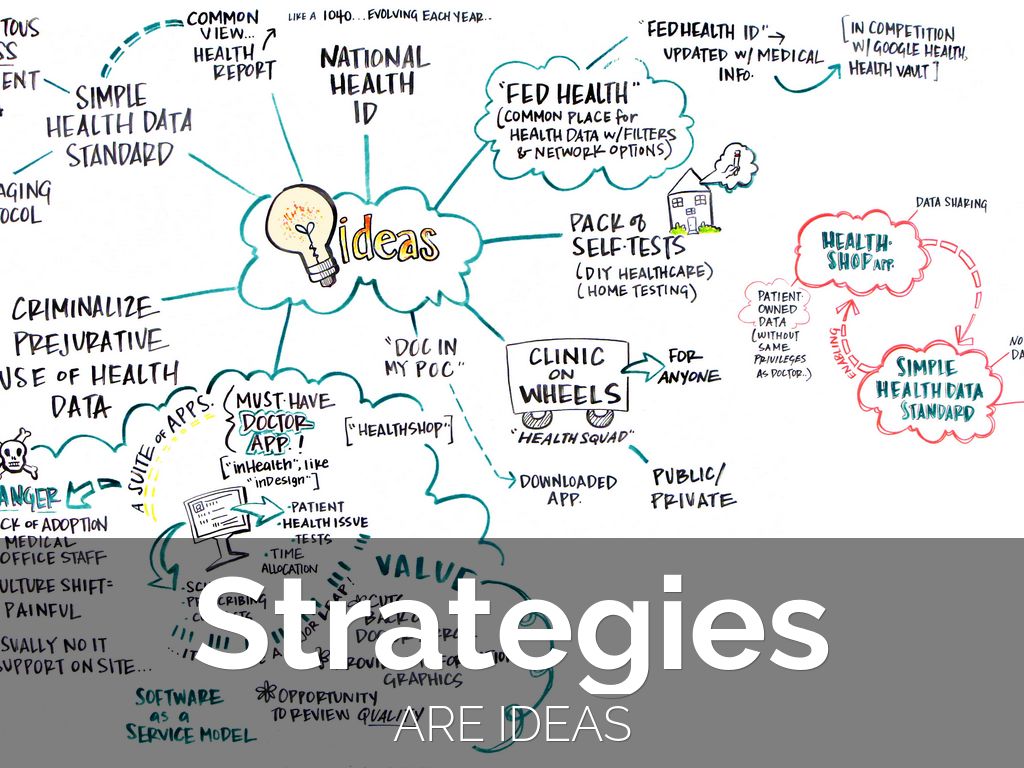 COMMON
VIEW...
HEALTH
REPORT
LIKE A 1040...EVOLVING EACH YEAR..
NATIONAL
HEALTH
ID
"FED HEALTH ID"→
UPDATED W/ MEDICAL
INFO.
[IN COMPETITION
W/ GOOGLE HEALTH,
HEALTH VAULT]
SIMPLE
HEALTH DATA
STANDARD
"FED HEALTH"
(COMMON PLACE for
HEALTH DATA W/FILTERS
& NETWORK OPTIONS)
ideas
PACK of
SELF-TESTS
(DIY HEALTHCARE)
(HOME TESTING)
DATA SHARING
HEALTH-
SHOP APP.
PATIENT-
OWNED
DATA
(WITHOUT
SAME
PRIVILEGES
AS DOCTOR..)
ENABLING
SIMPLE
HEALTH DATA
STANDARD
CRIMINALIZE
PREJURATIVE
USE of HEALTH
DATA
"DOC IN
MY POC"
CLINIC
ON
WHEELS
"HEALTH SQUAD"
FOR
ANYONE
PUBLIC/
PRIVATE
DOWNLOADED
APP.
A SUITE of APPS.
MUST-HAVE
DOCTOR
APP.!
["inHealth", like
"inDesign"]
["HEALTHSHOP"]
-PATIENT
-HEALTH ISSUE
-TESTS
-TIME
ALLOCATION
OF ADOPTION
MEDICAL
OFFICE STAFF
SHIFT=
PAINFUL
NO IT
SUPPORT ON SITE...
VALUE
GRAPHICS
SOFTWARE
as a
SERVICE MODEL
OPPORTUNITY
TO REVIEW QUALITY
Strategies
ARE IDEAS